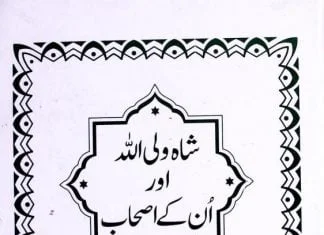 شاہ ولی اللہ
اور
اُن کے اصحاب